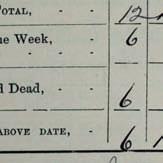 TOTAL, - - 12
ne Week, - - 6
d Dead, - - 6
ABOVE DATE, - 6